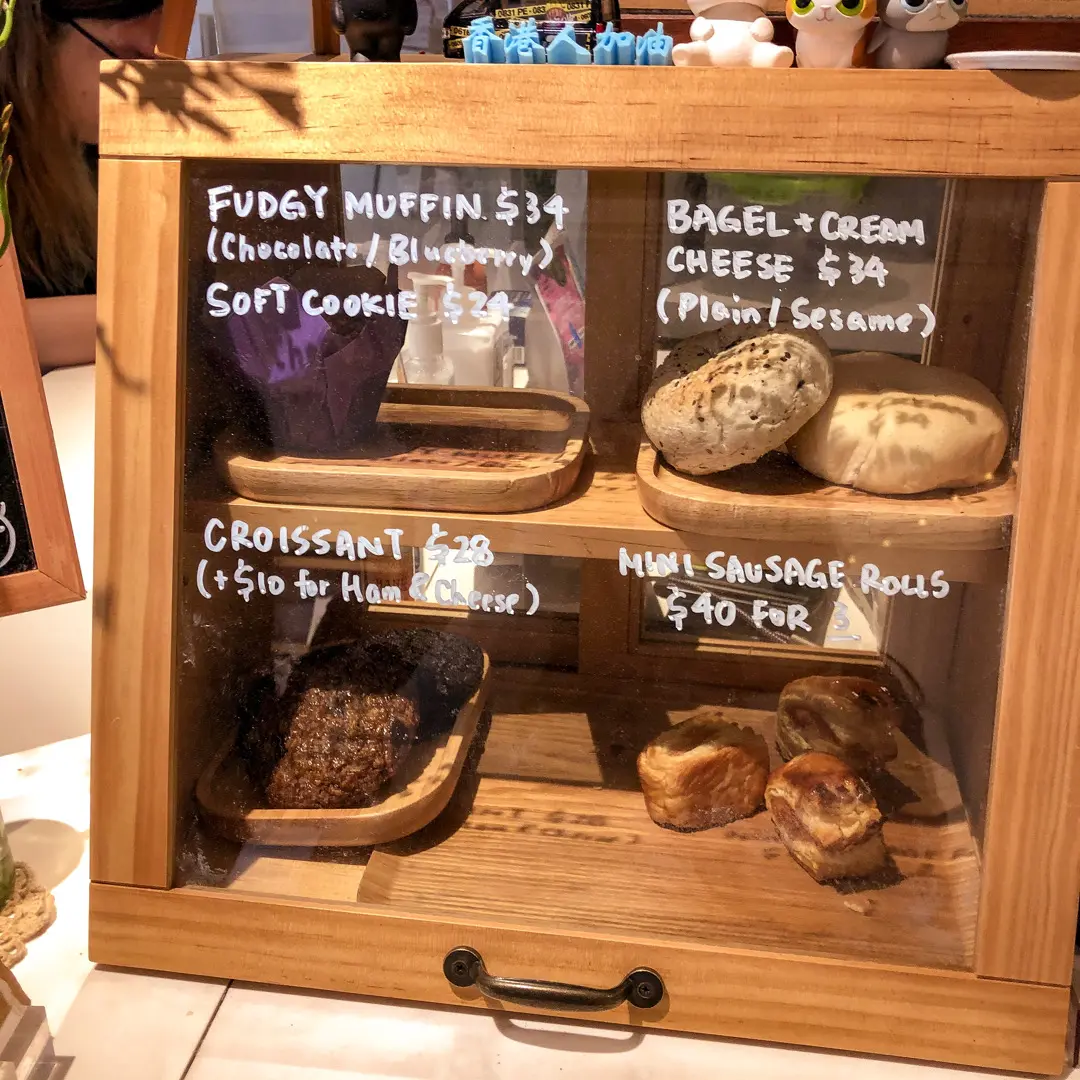 香港人加油
FUDGY MUFFIN $34
(Chocolate / Blueberry)
SOFT COOKIE $24
BAGEL + CREAM
CHEESE $34
(Plain / Sesame)
CROISSANT $28
(+$10 for Ham & Cheese)
MINI SAUSAGE ROLLS
$40 FOR 3